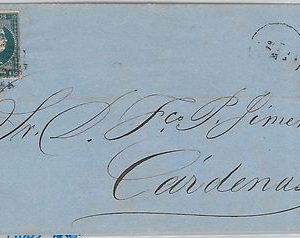 Sr. D. Fco. P. Jimen
Cárdenas